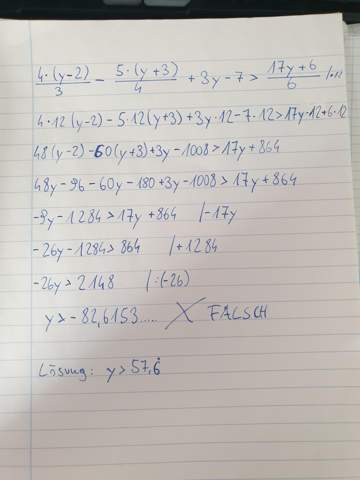 4·(y-2)/3 - 5·(y+3)/4 + 3y-7 > 17y+6/6 /·12
4·12(y-2)-5·12(y+3)+3y·12-7·12>17y·12+6·12
48(y-2)-60(y+3)+3y-1008>17y+864
48y-96-60y-180+3y-1008>17y+864
-9y-1284>17y+864 /-17y
-26y-1284>864 /+1284
-26y>2148 /:(-26)
y>-82,6153..... X FALSCH
Lösung: y>57,6̇